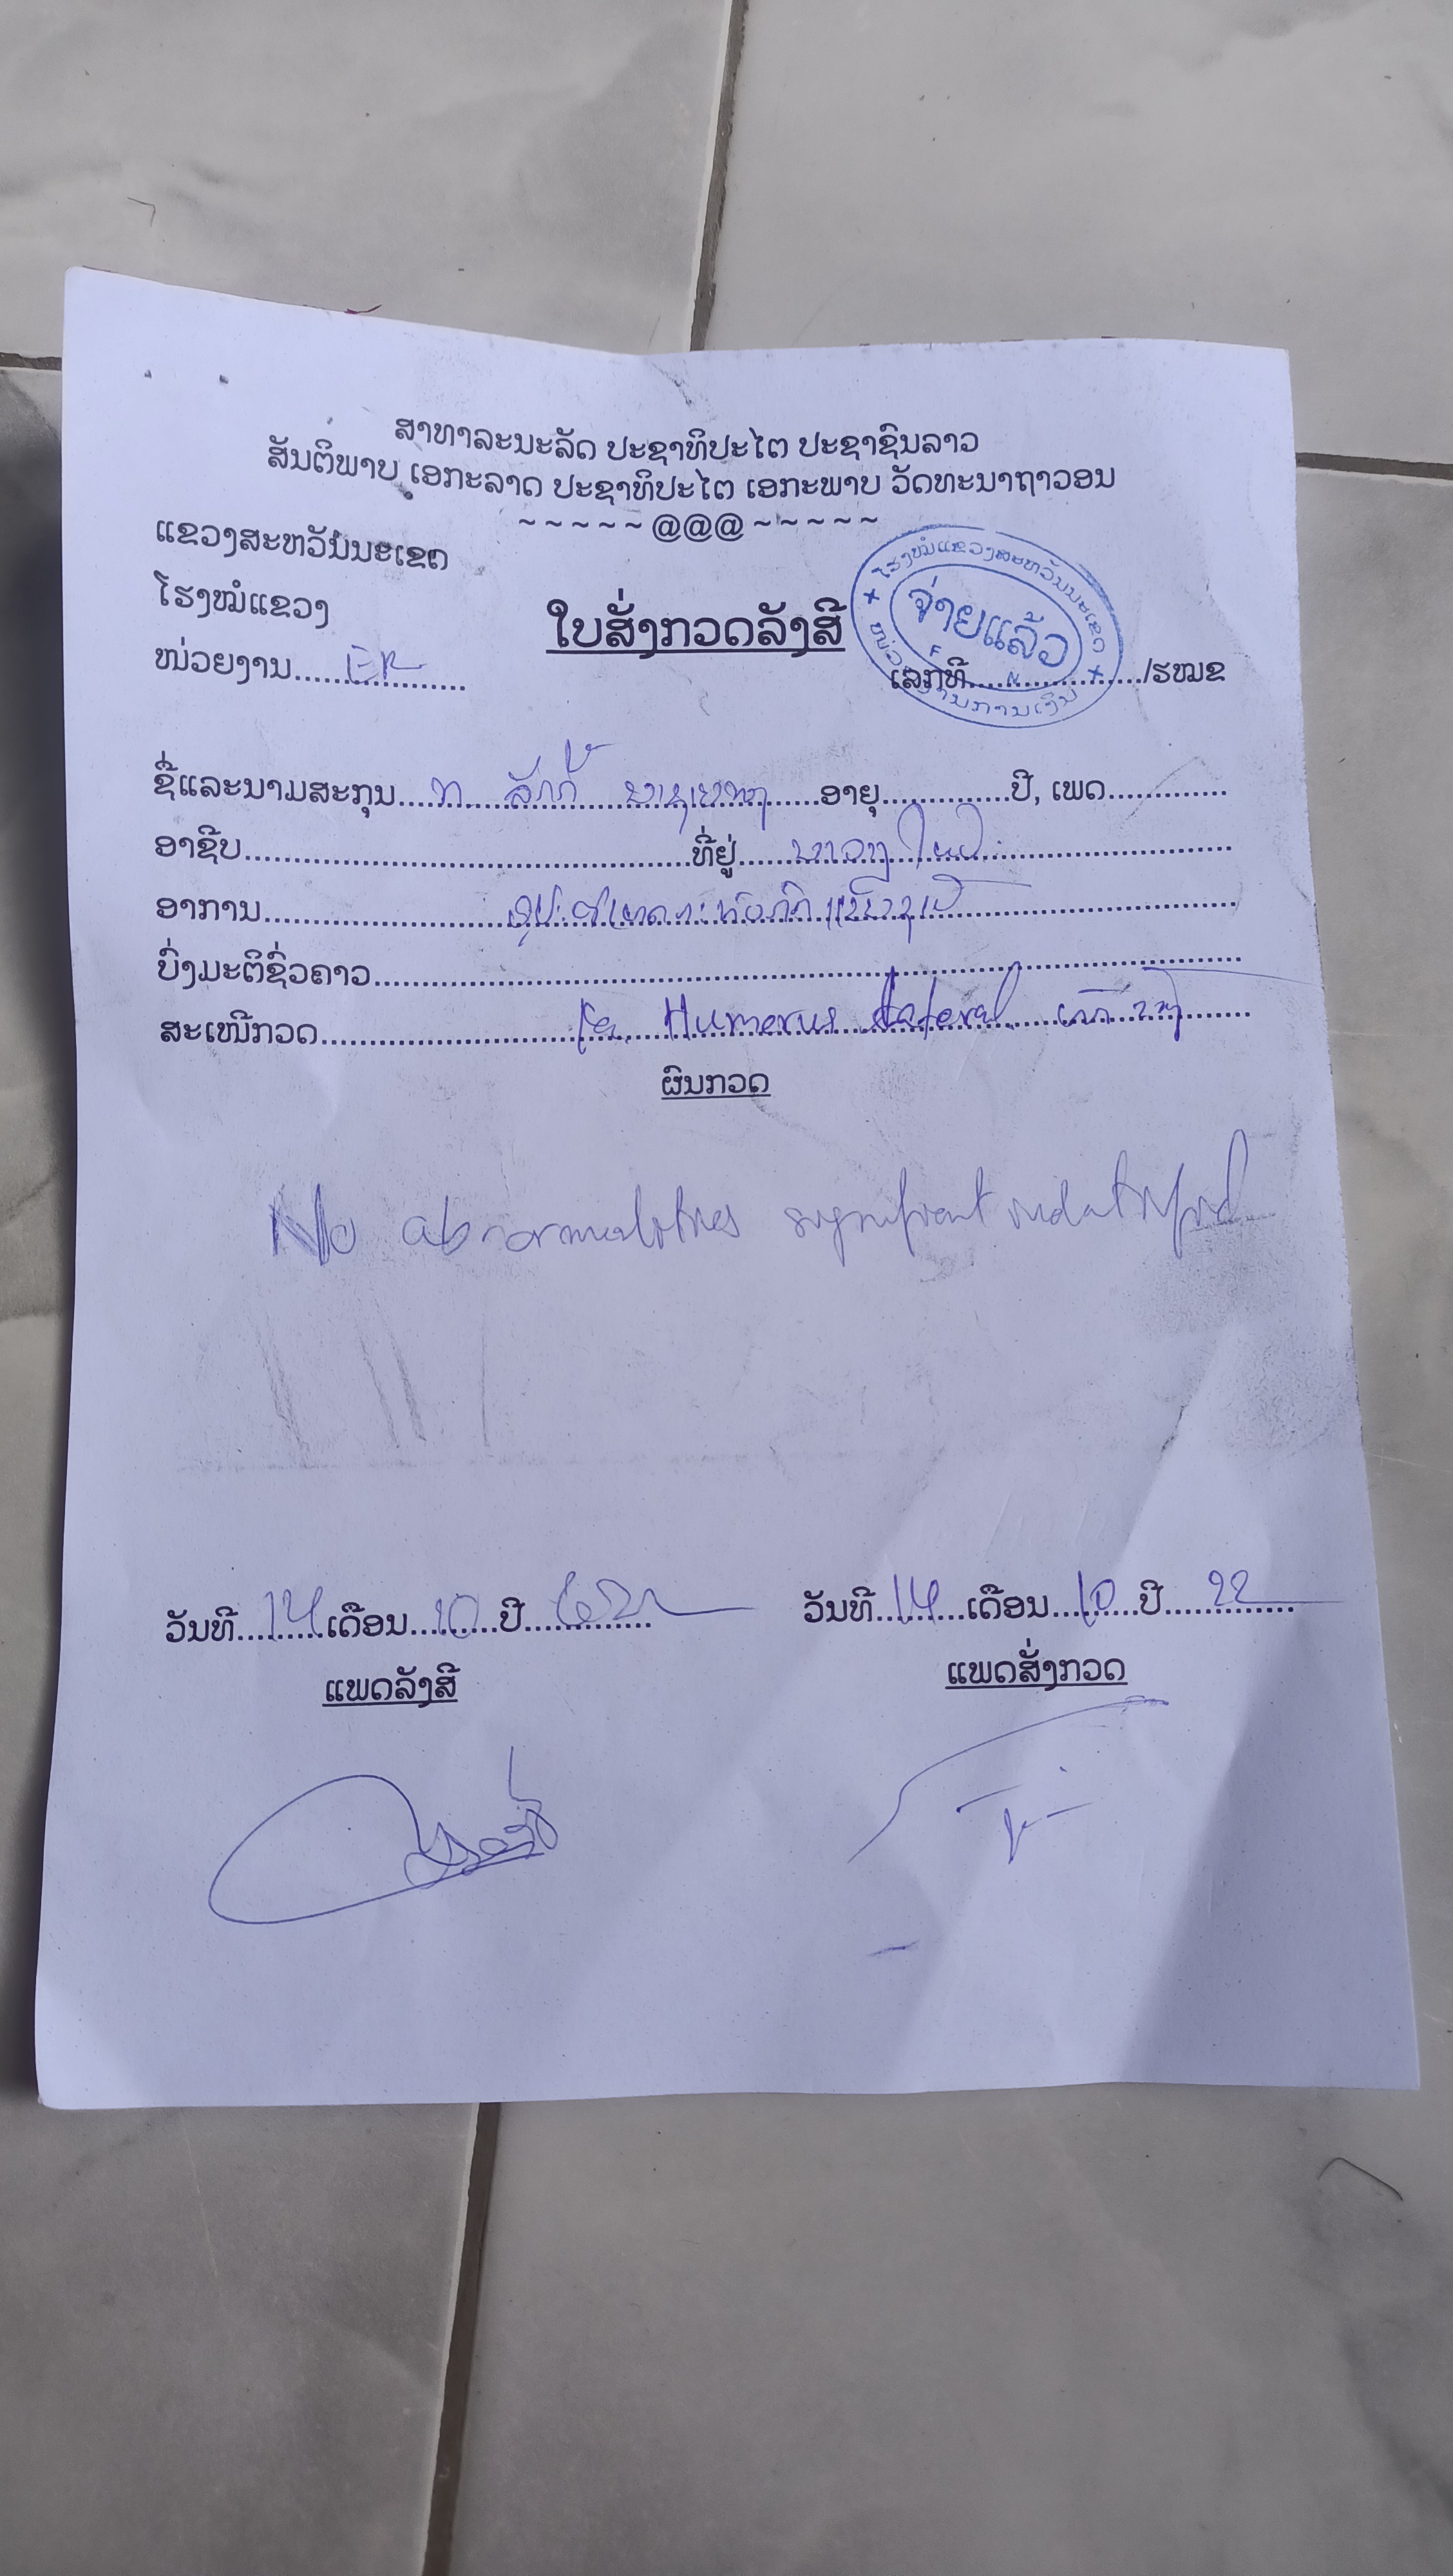 ສາທາລະນະລັດ ປະຊາທິປະໄຕ ປະຊາຊົນລາວ
ສັນຕິພາບ ເອກະລາດ ປະຊາທິປະໄຕ ເອກະພາບ ວັດທະນາຖາວອນ
~~~~~@@@~~~~~
ແຂວງສະຫວັນນະເຂດ
ໂຮງໝໍແຂວງ
ໜ່ວຍງານ.....ER.....
ໃບສັ່ງກວດລັງສີ
ໂຮງໝໍແຂວງສະຫວັນນະເຂດ
ຈ່າຍແລ້ວ
ໜ່ວຍງານການເງິນ
ເລກທີ..................../ຮໝຂ
ຊື່ແລະນາມສະກຸນ..........ອາຍຸ.............ປີ, ເພດ............
ອາຊີບ..............................ທີ່ຢູ່..............................
ອາການ..............................
ບົ່ງມະຕິຊົ່ວຄາວ..............................
ສະເໜີກວດ.................... Humerus lateral
ຜົນກວດ
No abnormalities significant
ວັນທີ...14...ເດືອນ...10...ປີ............
ວັນທີ...14...ເດືອນ...10...ປີ...22...
ແພດລັງສີ
ແພດສັ່ງກວດ